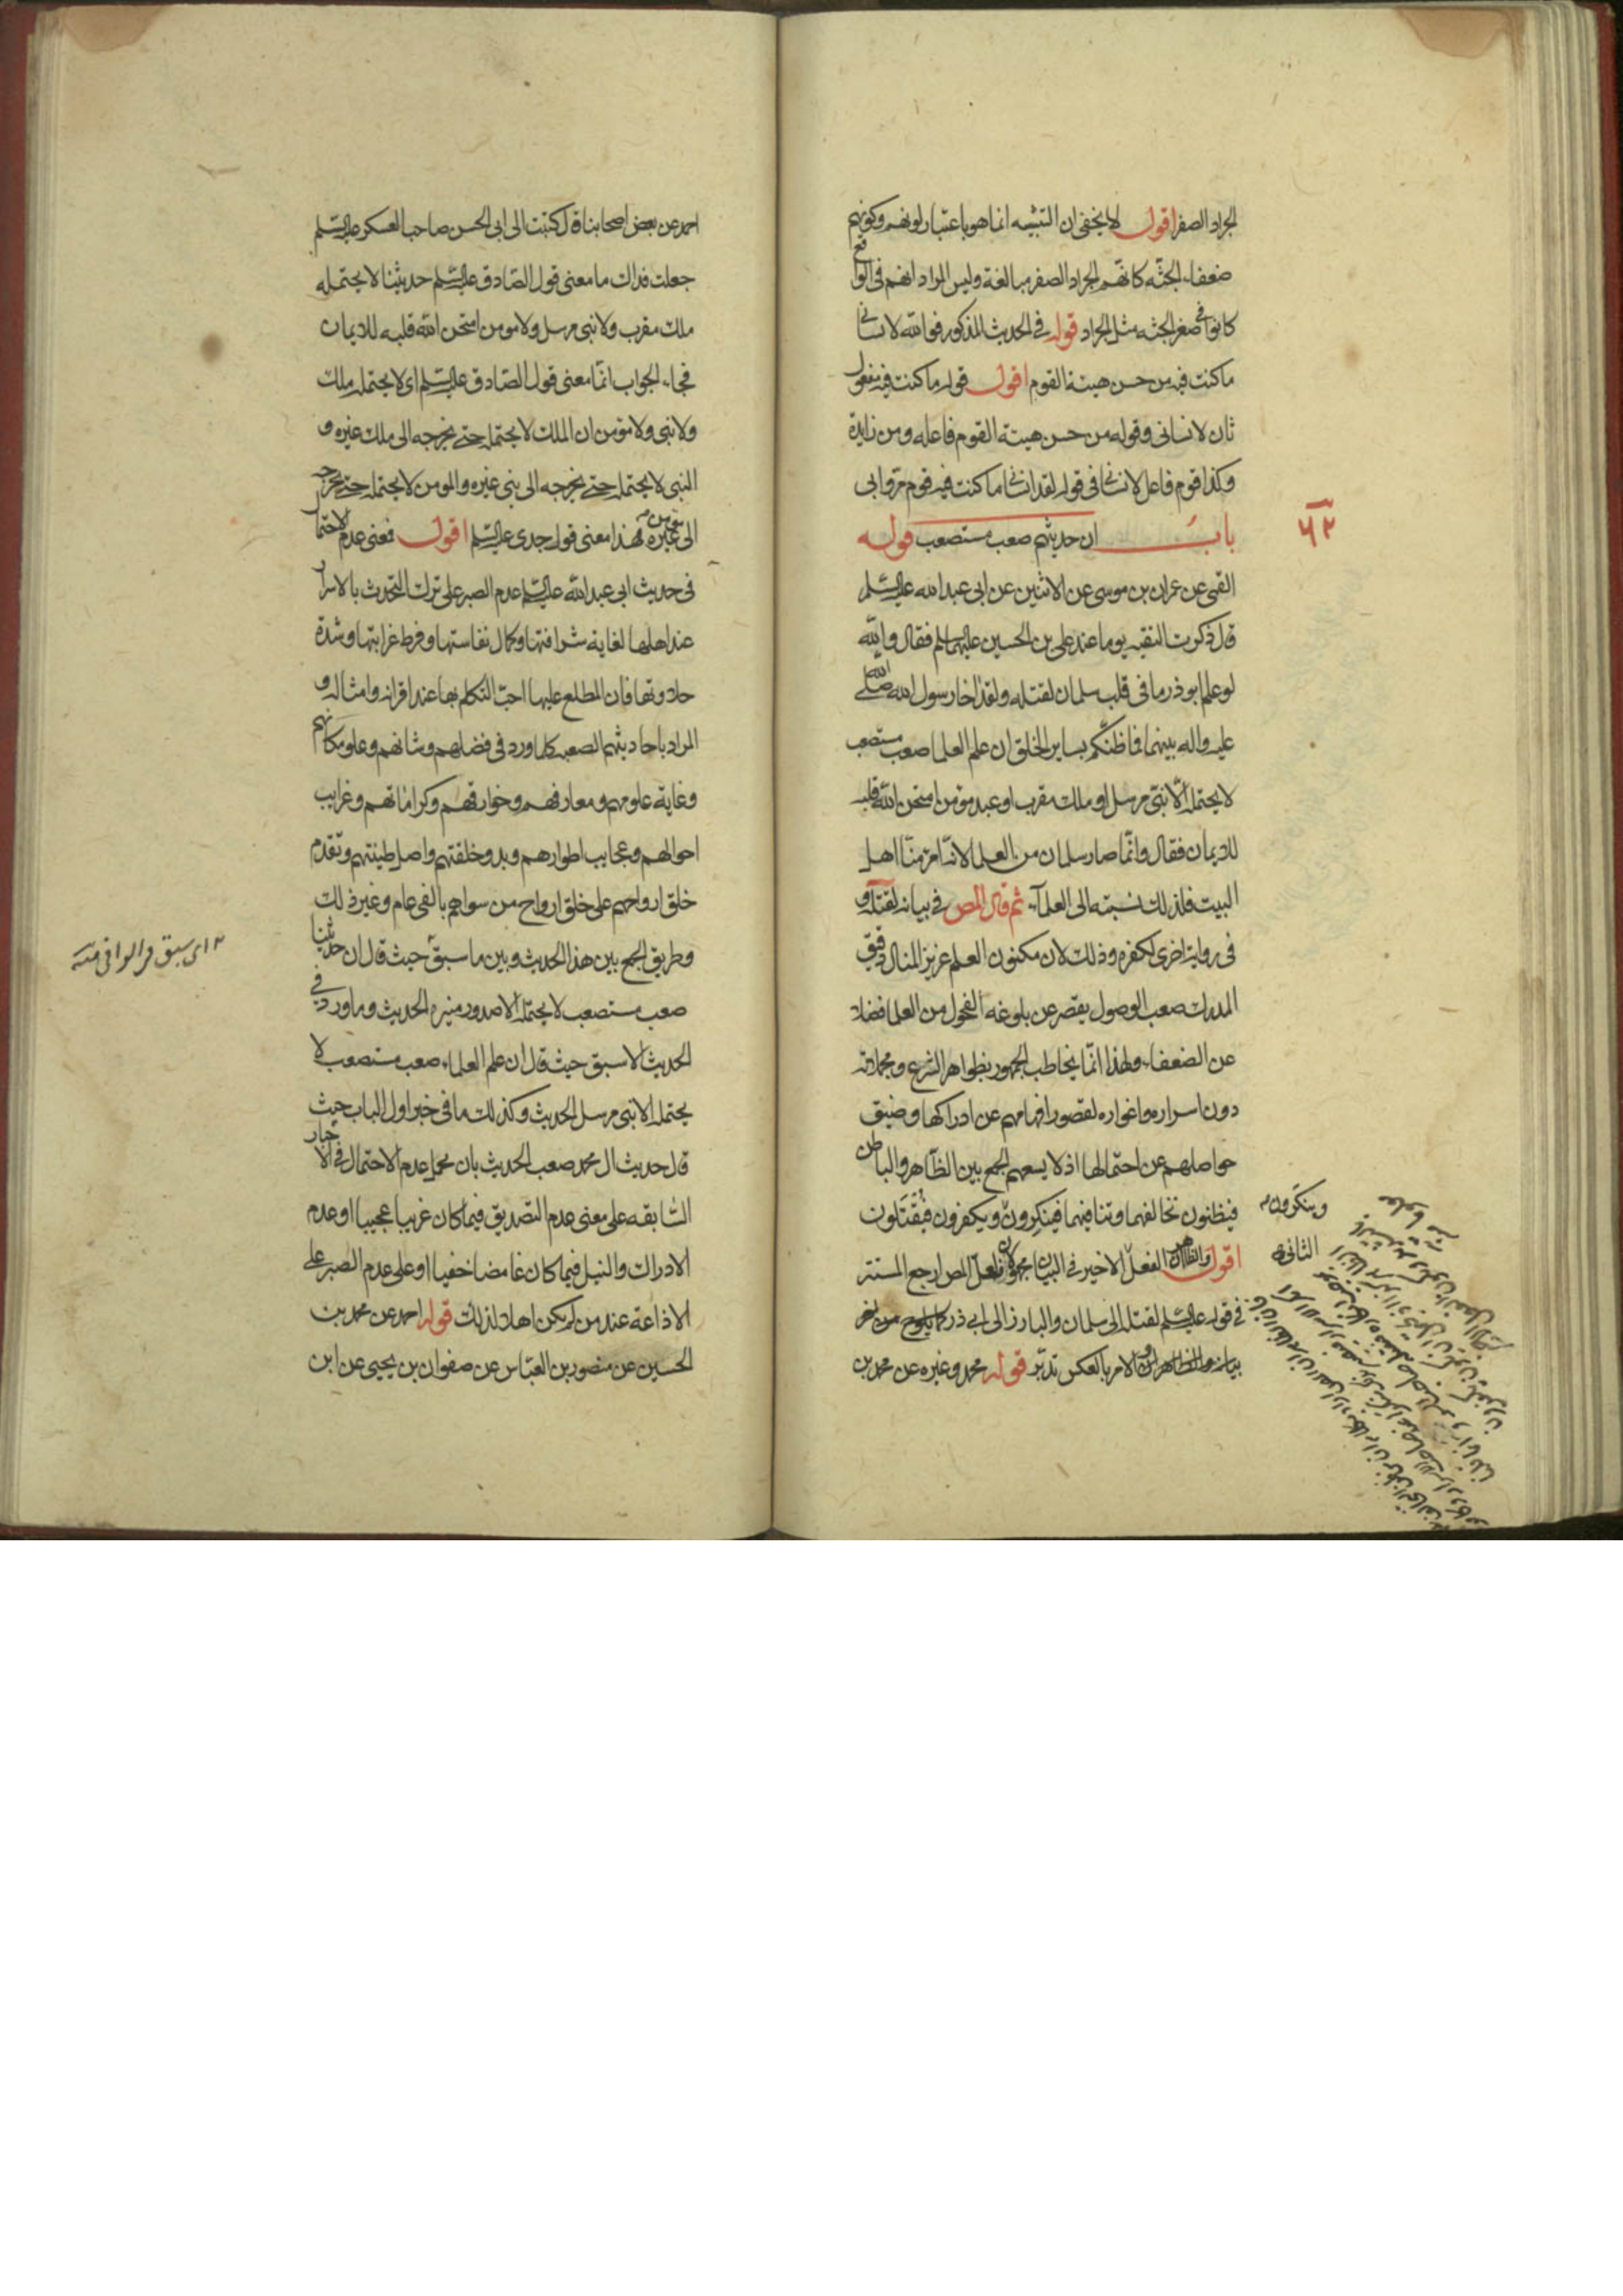 الجراد الصفر اقول لا يخفى ان التشبيه انما هو باعتبار لونهم وكونهم
ضعفاء الجثه كانهم الجراد الصفر مبالغة وليس المراد انهم فى الواقع
كانوا فى صغر الجثه مثل الجراد قوله فى الحديث المذكور فوالله لانسانى
ما كنت فيه من حسن هيئة القوم اقول قوله ما كنت فيه مفعول
ثان لانسانى وقوله من حسن هيئة القوم فاعله ومن زايدة
وكذا قوم فاعل لانسانى فى قوله لقد انسانى ما كنت فيه قوم مروا بى
باب ان حديثهم صعب مستصعب قوله
القمى عن عمران بن موسى عن الاثنين عن ابى عبد الله عليه السلم
قال ذكرت التقيه يوما عند على بن الحسين عليهما السلم فقال والله
لو علم ابو ذر ما فى قلب سلمان لقتله ولقد اخا رسول الله صلى الله
عليه واله بينهما فما ظنكم بساير الخلق ان علم العلما صعب مستصعب
لا يحتمله الا نبى مرسل او ملك مقرب او عبد مؤمن امتحن الله قلبه
للايمان فقال وانما صار سلمان من العلما لانه امرؤ منا اهل
البيت فلذلك نسبته الى العلماء ثم قال المص فى بيانه لقتله و
فى رواية اخرى لكفره وذلك لان مكنون العلم عزيز المنال دقيق
المدرك صعب الوصول يقصر عن بلوغه الفحول من العلما فضلا
عن الضعفاء ولهذا انما يخاطب الجمهور بظواهر الشرع ومجملاته
دون اسراره واغواره لقصور افهامهم عن ادراكها وضيق
حواصلهم عن احتمالها اذ لا يسعهم الجمع بين الظاهر والباطن
فيظنون تخالفهما وتنافيهما فينكرون ويكفرون فيقتلون
وينكرون
اقول والظاهر ان الفعل الاخير فى البيان مجهول لان المص ارجع المستتر
الثانى
فى قوله عليه السلم لقتله الى سلمان والبارز الى ابى ذر كما يلوح من اخر
بيانه والظاهر ان الامر بالعكس تدبر قوله محمد وغيره عن محمد بن
۶۲
احمد عن بعض اصحابنا قال كتبت الى ابى الحسن صاحب العسكر عليه السلم
جعلت فداك ما معنى قول الصادق عليه السلم حديثنا لا يحتمله
ملك مقرب ولا نبى مرسل ولا مومن امتحن الله قلبه للايمان
فجاء الجواب انما معنى قول الصادق عليه السلم اى لا يحتمله ملك
ولا نبى ولا مؤمن ان الملك لا يحتمله حتى يخرجه الى ملك غيره و
النبى لا يحتمله حتى يخرجه الى نبى غيره والمومن لا يحتمله حتى يخرجه
الى مؤمن غيره فهذا معنى قول جدى عليه السلم اقول فمعنى عدم الاحتمال
فى حديث ابى عبد الله عليه السلم عدم الصبر على ترك التحدث بالاسرار
عند اهلها لغاية شرافتها وكمال نفاستها وفرط غرابتها وشدة
حلاوتها فان المطلع عليها احب التكلم بها عند اقرانه وامثاله و
المراد باحاديثهم الصعبه كلما ورد فى فضلهم وشانهم وعلو مكانهم
وغاية علومهم ومعارفهم وخوارقهم وكراماتهم وغرايب
احوالهم وعجايب اطوارهم وبدو خلقتهم واصل طينتهم وتقدم
خلق ارواحهم على خلق ارواح من سواهم بالفى عام وغير ذلك
وطريق الجمع بين هذا الحديث وبين ما سبق حيث قال ان حديثنا
صعب مستصعب لا يحتمله الا صدور منيره الحديث وما ورد فى
الحديث الاسبق حيث قال ان علم العلماء صعب مستصعب لا
يحتمله الا نبى مرسل الحديث وكذلك ما فى خبر اول الباب حيث
قال حديث ال محمد صعب الحديث بان يحمل عدم الاحتمال فى الاخبار
السابقه على معنى عدم التصديق فيما كان غريبا عجيبا او عدم
الادراك والنيل فيما كان غامضا خفيا او على عدم الصبر على
الاذاعة عند من لم يكن اهلا لذلك قوله احمد عن محمد بن
الحسين عن منصور بن العباس عن صفوان بن يحيى عن ابن
اى سبق فى الوافى منه